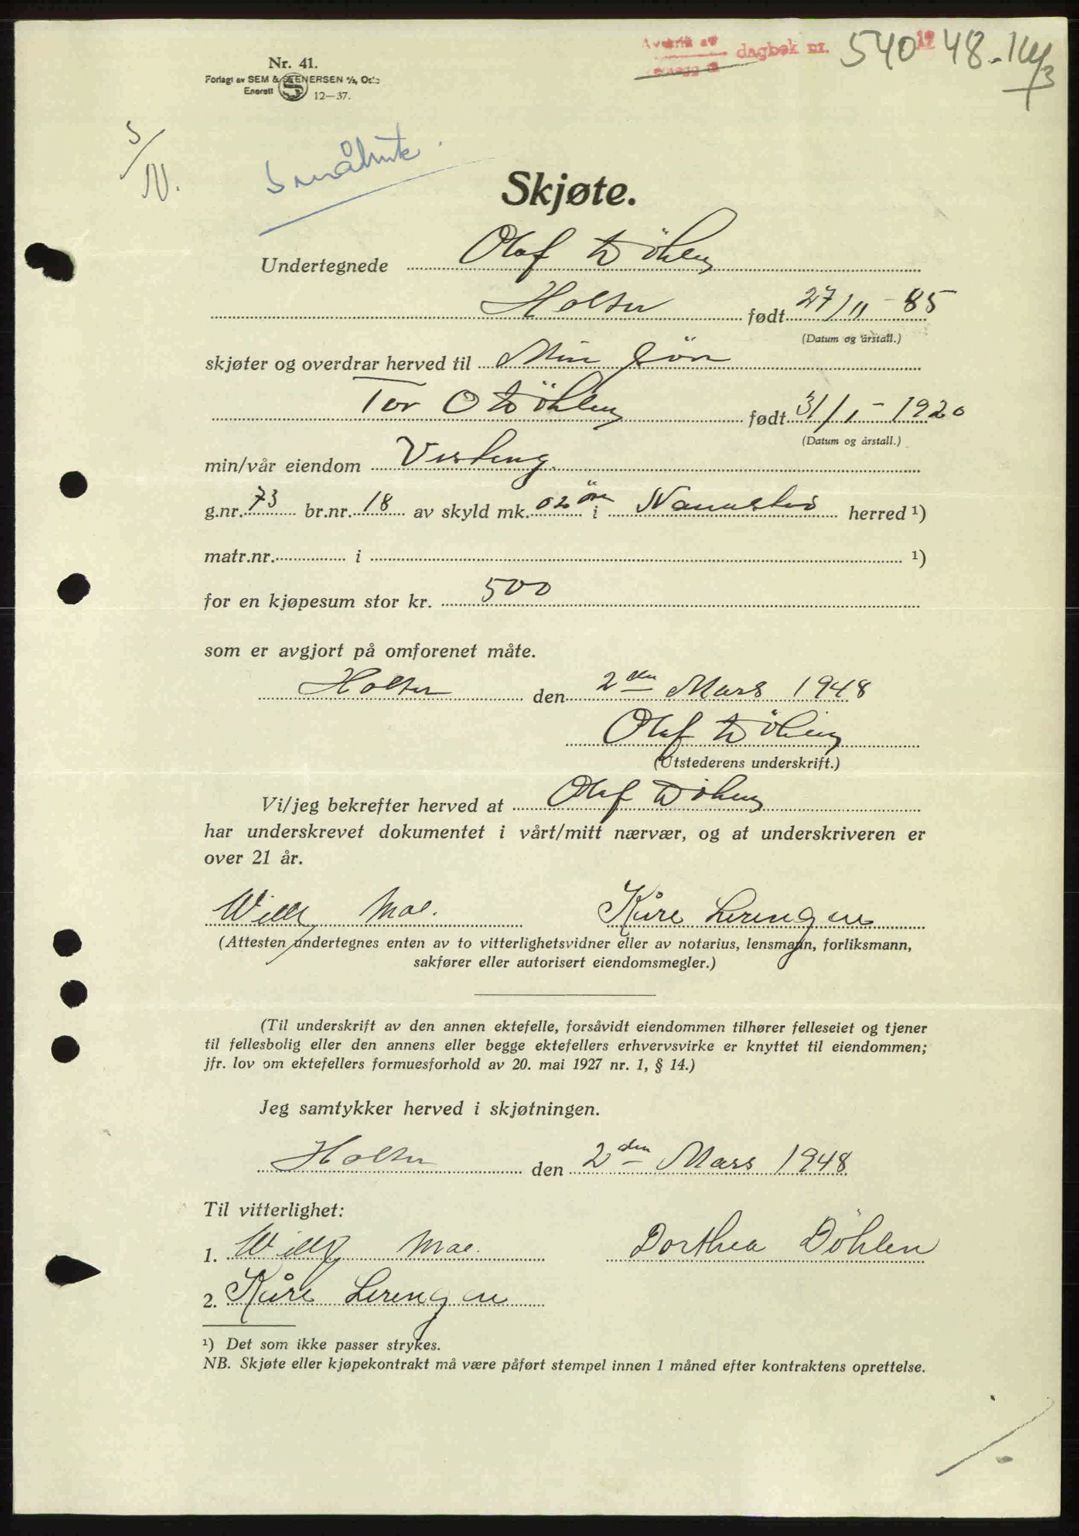 Nr. 41.
Forlagt av SEM & STENERSEN A/S, Oslo
Enerett 12—37.
dagbok nr. 540 19 48 - 16/3
S/N.
Småbruk
Skjøte.
Undertegnede Olaf Döhlen
Holter født 27/11 - 85
(Datum og årstall.)
skjøter og overdrar herved til Min Sön
Tor O Döhlen født 31/1 - 1920
(Datum og årstall.)
min/vår eiendom
g.nr. 73 br.nr. 18 av skyld mk. 02 öre i Nannestad herred ¹)
matr.nr. i ¹)
for en kjøpesum stor kr. 500
som er avgjort på omforenet måte.
Holter den 2den Mars 1948
Olaf Döhlen
(Utstederens underskrift.)
Vi/jeg bekrefter herved at Olaf Döhlen
har underskrevet dokumentet i vårt/mitt nærvær, og at underskriveren er
over 21 år.
Willy Moe. Kåre Lerengen
(Attesten undertegnes enten av to vitterlighetsvidner eller av notarius, lensmann, forliksmann,
sakfører eller autorisert eiendomsmegler.)
(Til underskrift av den annen ektefelle, forsåvidt eiendommen tilhører felleseiet og tjener
til fellesbolig eller den annens eller begge ektefellers erhvervsvirke er knyttet til eiendommen;
jfr. lov om ektefellers formuesforhold av 20. mai 1927 nr. 1, § 14.)
Jeg samtykker herved i skjøtningen.
Holter den 2den Mars 1948
Til vitterlighet:
1. Willy Moe. Dorthea Döhlen
2. Kåre Lerengen
¹) Det som ikke passer strykes.
NB. Skjøte eller kjøpekontrakt må være påført stempel innen 1 måned efter kontraktens oprettelse.